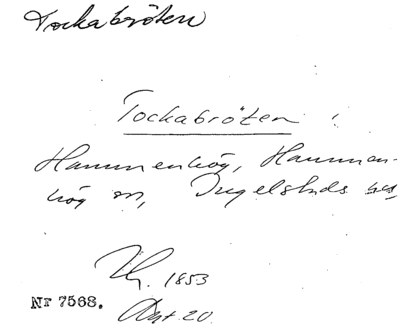 Tockabröten
Tockabröten
Hammenhög, Hammen-
hög sn, Ingelstads hd,
1853
Nr 7568. Akt 20